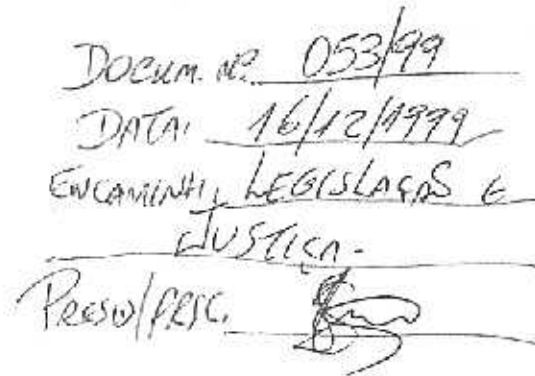 DOCUM. Nº 053/99
DATA: 16/12/1999
ENCAMINH. LEGISLAÇÃO E
JUSTIÇA.